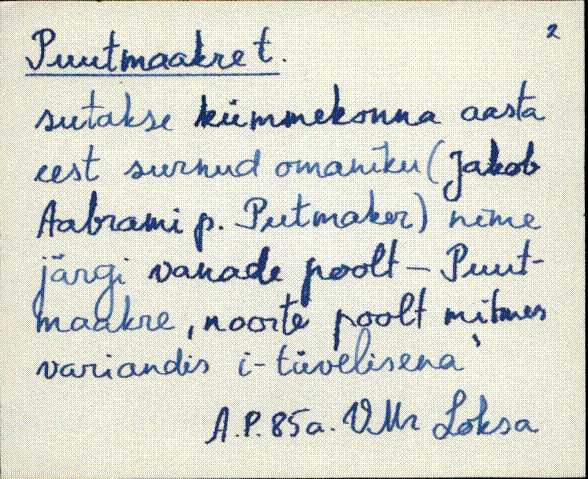 2
Puutmaakre t.
sutakse kümmekonna aasta
eest surnud omaniku (Jakob
Aabrami p. Putmaker) nime
järgi vanade poolt – Puut-
maakre, noorte poolt mitmes
variandis i-tüvelisena
A.P. 85a. VMr Loksa